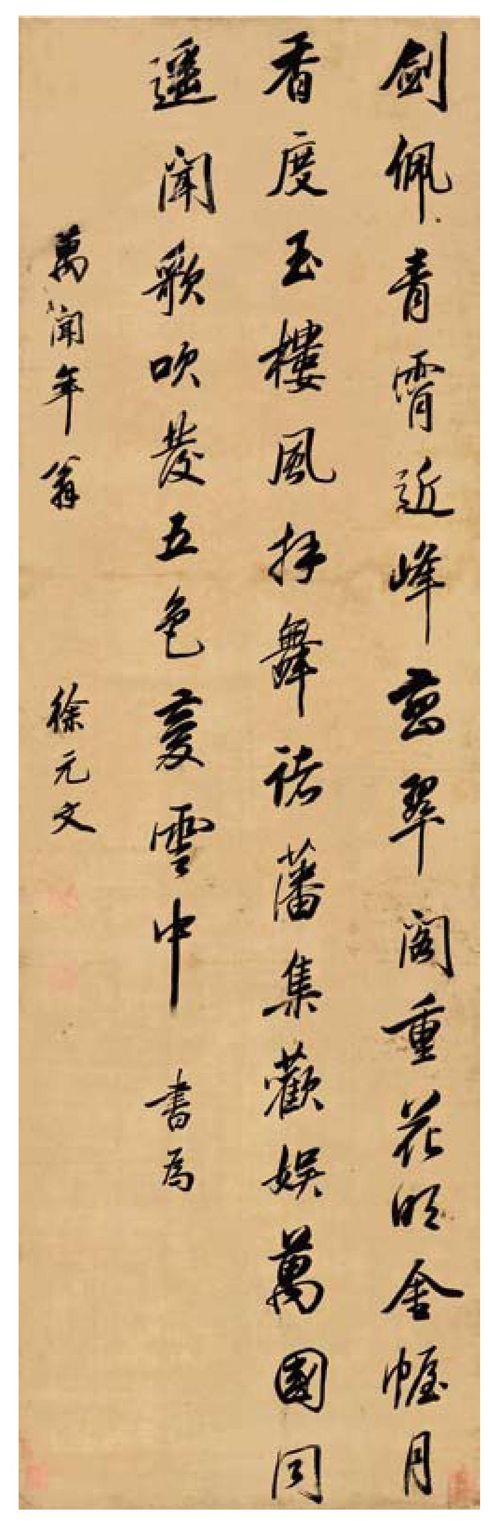 劍佩青霄近峰巒翠閣重花明金幄月
香度玉樓風拜舞諸藩集歡娛萬國同
遙聞歌吹發五色慶雲中 書為
萬聞年翁 徐元文